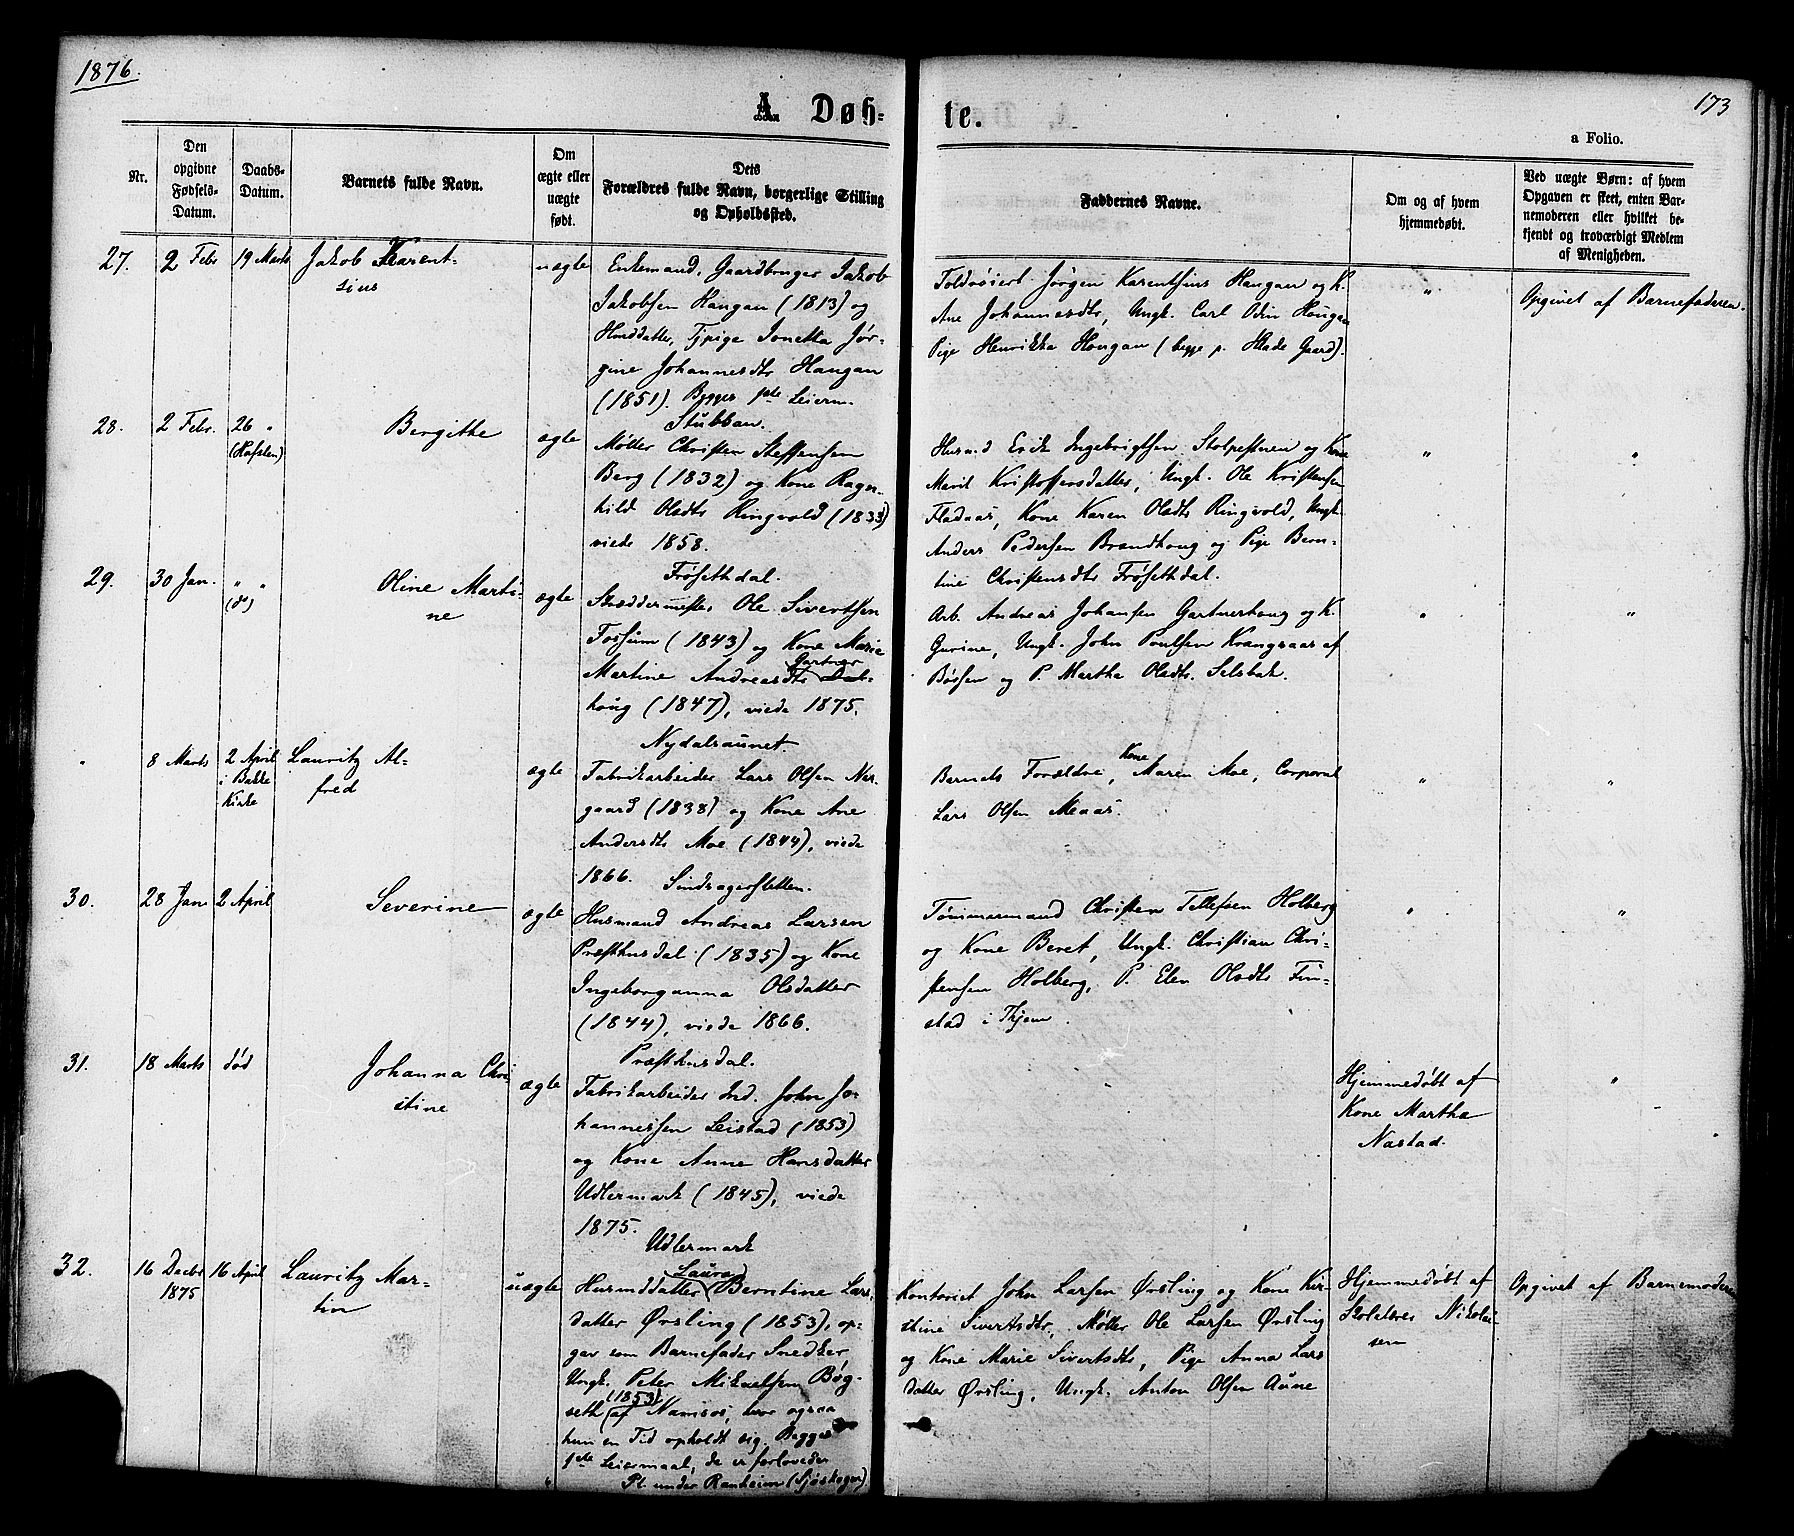 1876.
173
A Døb-
te.
a Folio.
Nr.
Den opgivne Fødsels-Datum.
Daabs-Datum.
Barnets fulde Navn.
Om ægte eller uægte født.
Dets Forældres fulde Navn, borgerlige Stilling og Opholdssted.
Faddernes Navne.
Om og af hvem hjemmedøbt.
Ved uægte Børn: af hvem Opgaven er skeet, enten Barnemoderen eller hvilket bekjendt og troværdigt Medlem af Menigheden.
27. 2 Febr 19 Marts Jakob Karent-
sius
uægte
Enkemand, Gaardbruger Jakob
Jakobsen Haugan (1813) og
Husdatter, Tjpige Jonetta Jør-
gine Johannesdtr Haugan
(1851). Begges 1ste Leierm.
Stubban.
Toldrøiert Jørgen Karentsius Haugan og K.
Ane Johannesdtr, Ungk. Carl Odin Haugan
Pige Henrikka Haugan (begge p. Hlade Gaard).
"
Opgivet af Barnefaderen.
28. 2 Febr. 26 "
(Hafsten)
Bergithe
ægte
Møller Christen Steffensen
Berg (1832) og Kone Ragn-
hild Olsdtr Ringvold (1833)
viede 1858.
Frøsethdal.
Husmd Erik Ingebrigtsen Stolpestuen og Kone
Marit Kristoffersdatter, Ungk. Ole Kristensen
Fladaas, Kone Karen Olsdtr Ringvold, Ungk.
Anders Pedersen Brandhaug og Pige Bern-
tine Christensdtr Frøsethdal.
"
"
29. 30 Jan. " "
(do)
Oline Marti-
ne
ægte
Skræddermester Ole Sivertsen
Fossum (1843) og Kone Marie
Martine Andreasdtr Gartner
haug (1847), viede 1875.
Nydalsaunet.
Arb. Andreas Johansen Gartnerhaug og K.
Gurine, Ungk. John Poulsen Krangsaas af
Børsen og P. Martha Olsdtr. Selsbak.
"
"
" 8 Marts 2 April
i Bakke
Kirke
Lauritz Al-
fred
ægte
Fabrikarbeider Lars Olsen Nor-
gaard (1838) og Kone Ane
Andersdtr Moe (1844), viede
1866.
Sindsagersletten.
Barnets Forældre, Kone Maren Moe, Corporal
Lars Olsen Meaas.
"
"
30. 28 Jan 2 April Severine
ægte
Husmand Andreas Larsen
Præsthusdal (1835) og Kone
Ingeborganna Olsdatter
(1844), viede 1866.
Præsthusdal.
Tømmermand Christen Tellefsen Holberg
og Kone Beret, Ungk. Christian Chri-
stensen Holberg, P. Elen Olsdtr Fin-
stad i Thjem.
"
"
31. 18 Marts død Johanna Chri-
stine
ægte
Fabrikarbeider Ind. John Jo-
hannessen Leistad (1853)
og Kone Anne Hansdatter
Udlermark (1845), viede
1875.
Udlermark
Hjemmedøbt af
Kone Martha
Nastad.
"
32. 16 Decbr 16 April
1875
Lauritz Mar-
tin
uægte
Husmdatter Laura Berntine Lars-
datter Ørsling (1853), op-
gav som Barnefader Snedker
Ungk. Peter Mikaelsen Bøg-
seth (1853) af Namsos, hvor ogsaa
hun en Tid opholdt sig. Begges
1ste Leiermaal, de er forlovede.
Pl. under Ranheim (Sjøskogen)
Kontorist John Larsen Ørsling og Kone Kir-
stine Sivertsdtr, Møller Ole Larsen Ørsling
og Kone Marie Sivertsdtr, Pige Anna Lars
datter Ørsling, Ungk. Anton Olsen Aune
Hjemmedøbt af
Skolelærer Nikolai-
sen
Opgivet af Barnemoderen